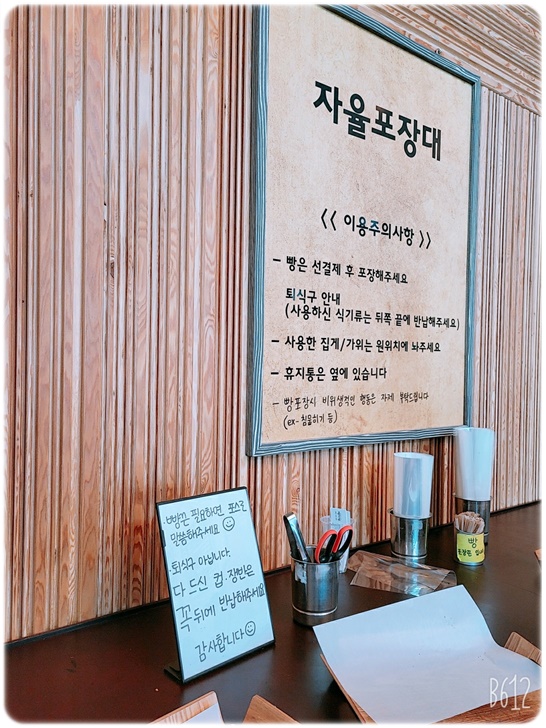 자율포장대
<< 이용주의사항 >>
- 빵은 선결제 후 포장해주세요
퇴식구 안내
(사용하신 식기류는 뒤쪽 끝에 반납해주세요)
- 사용한 집게/가위는 원위치에 놔주세요
- 휴지통은 옆에 있습니다
- 빵포장시 비위생적인 행동은 자제 부탁드립니다
(ex- 침묻히기 등)
·빵끈 필요하면 포스로
말씀해주세요
·퇴식구 아닙니다.
다 드신 컵·쟁반은
꼭 뒤에 반납해주세요
감사합니다
빵
B612